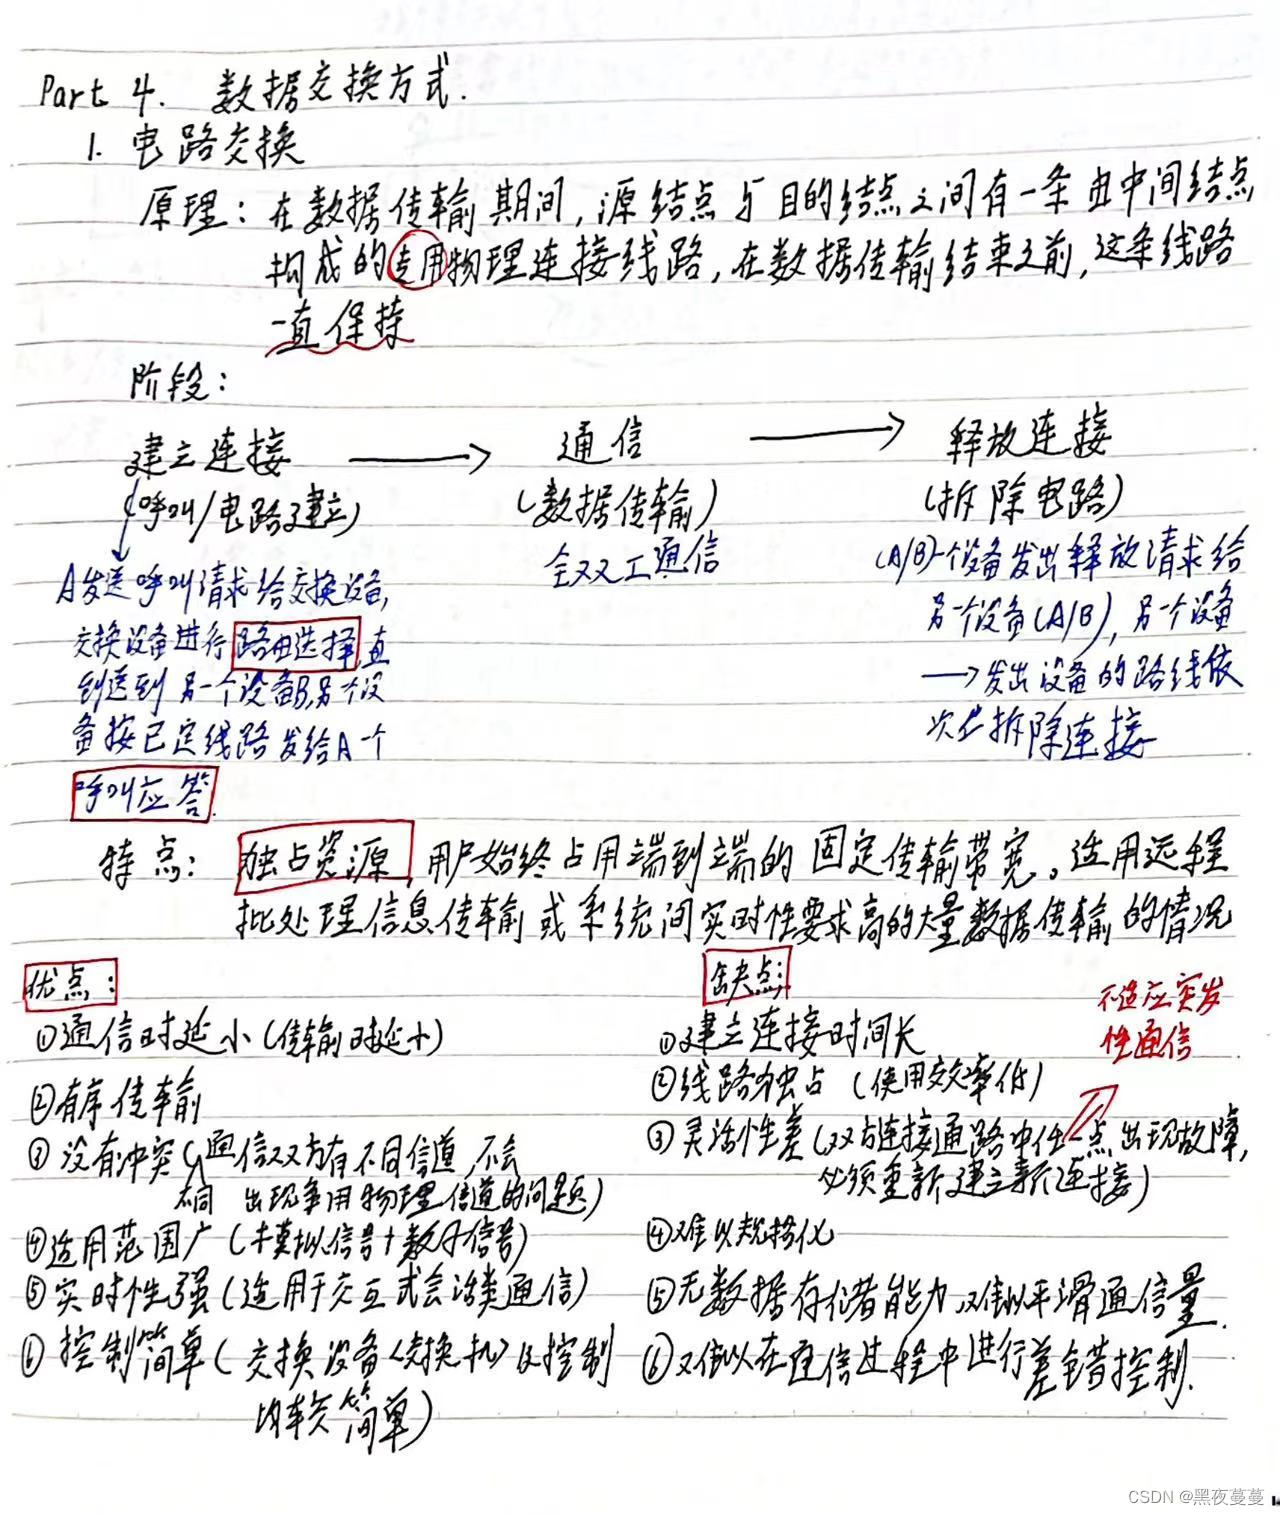 Part 4. 数据交换方式.
1. 电路交换
原理: 在数据传输期间, 源结点与目的结点之间有一条由中间结点
构成的专用物理连接线路, 在数据传输结束之前, 这条线路
一直保持
阶段:
建立连接 → 通信 → 释放连接
(呼叫/电路建立) (数据传输) (拆除电路)
全双工通信
A发送呼叫请求给交换设备,
交换设备进行路由选择, 直
到送到另一个设备B, 另一个设
备按已定线路发给A一个
呼叫应答.
(A/B)一个设备发出释放请求给
另一个设备(A/B), 另一个设备
→发出设备的路线依
次拆除连接
特点: 独占资源, 用户始终占用端到端的固定传输带宽。适用远程
批处理信息传输或系统间实时性要求高的大量数据传输的情况
优点:
①通信时延小(传输时延小)
②有序传输
③没有冲突(不同通信双方有不同信道, 不会
出现争用物理信道的问题)
④适用范围广(模拟信号+数字信号)
⑤实时性强(适用于交互式会话类通信)
⑥控制简单(交换设备<交换机>及控制
均较简单)
缺点:
不适应突发
性通信
①建立连接时间长
②线路独占 (使用效率低)
③灵活性差(双方连接通路中任一点出现故障,
必须重新建立新连接)
④难以规格化
⑤无数据存储能力, 难以平滑通信量.
⑥难以在通信过程中进行差错控制.
CSDN @黑夜蔓蔓